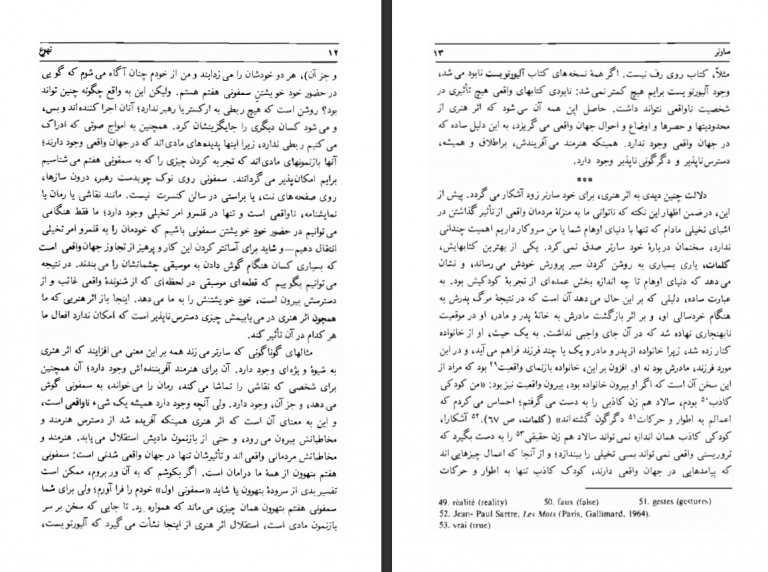 ۱۲ تهوع
و جز آن)، هر دو خودشان را می زدایند و من از خودم چنان آگاه می شوم که گویی
در حضور خود خویشتنِ سمفونی هفتم هستم. ولیکن این به واقع چگونه چنین تواند
بود؟ روشن است که هیچ ربطی به ارکستر یا رهبر ندارد؛ آنان اجرا کننده اند و بس،
و می شود کسان دیگری را جایگزینشان کرد. همچنین به امواج صوتی که ادراک
می کنیم ربطی ندارد، زیرا اینها پدیده های مادی اند که در جهان واقعی وجود دارند؛
آنها بازنمونهای مادی اند که تجربه کردن چیزی را که به سمفونی هفتم می شناسیم
برایم امکان پذیر می گردانند. سمفونی روی نوک چوبدست رهبر، درون سازها،
روی صفحه های نت، یا براستی در سالن کنسرت نیست. مانند نقاشی یا رمان یا
نمایشنامه، ناواقعی است و تنها در قلمرو امر تخیلی وجود دارد؛ ما فقط هنگامی
می توانیم در حضور خودِ خویشتن سمفونی باشیم که خودمان را به قلمرو امر تخیلی
انتقال دهیم — و شاید برای آسانتر کردن این کار و پرهیز از تجاوز جهان واقعی است
که بسیاری کسان هنگام گوش دادن به موسیقی چشمانشان را می بندند. در نتیجه
می توانیم بگوییم که قطعه ای موسیقی در لحظه ای که از شنونده واقعی غائب و از
دسترسش بیرون است، خودِ خویشتنش را به ما می دهد. اینجا باز اثر هنریی که ما
همچون اثر هنری در می یابیمش چیزی دسترس ناپذیر است که امکان ندارد افعال ما
هر کدام در آن تأثیر کند.
مثالهای گوناگونی که سارتر می زند همه بر این معنی می افزایند که اثر هنری
به شیوه و یژه ای وجود دارد. آن برای هنرمند آفریننده اش وجود دارد؛ آن همچنین
برای شخصی که نقاشی را تماشا می کند، رمان را می خواند، به سمفونی گوش
می دهد، و جز آن، وجود دارد. ولی آنچه وجود دارد همیشه یک شیء ناواقعی است،
و این به معنای آن است که اثر هنری همینکه آفریده شد از دسترس هنرمند و
مخاطبانش بیرون می رود، و حتی از بازنمون مادیش استقلال می یابد. هنرمند و
مخاطبانش مردمانی واقعی اند و تأثیرشان تنها در جهان واقعی شدنی است: سمفونی
هفتم بتهوون از همهٔ ما در امان است. اگر بکوشم که به آن ور بروم، ممکن است
تفسیر بدی از سرودهٔ بتهوون یا شاید «سمفونی اول» خودم را فرا آورم؛ ولی برای شما
سمفونی هفتم بتهوون همان چیزی می ماند که همواره بود. تا جایی که سخن بر سر
بازنمون مادی است، استقلال اثر هنری از اینجا نشأت می گیرد که آلیورتویست،
سارتر ۱۳
مثلاً، کتاب روی رف نیست. اگر همهٔ نسخه های کتاب آلیورتویست نابود می شد،
وجود آلیورتویست برایم هیچ کمتر نمی شد: نابودی کتابهای واقعی هیچ تأثیری در
شخصیت ناواقعی نتواند داشت. حاصل این همه آن می شود که اثر هنری از
محدودیتها و حصرها و اوضاع و احوال جهان واقعی می گریزد، به این دلیل ساده که
در جهان واقعی وجود ندارد. همینکه هنرمند می آفریندش، براطلاق و همیشه،
دسترس ناپذیر و دگرگونی ناپذیر وجود دارد.
***
دلالت چنین دیدی به اثر هنری، برای خود سارتر زود آشکار می گردد. پیش از
این، در ضمن اظهار این نکته که ناتوانی ما به منزلهٔ مردمان واقعی از تأثیر گذاشتن در
اشیای تخیلی مادام که تنها با دنیای اوهام شما یا من سروکار داریم اهمیت چندانی
ندارد، سخنمان دربارهٔ خود سارتر صدق نمی کرد. یکی از بهترین کتابهایش،
کلمات، یاری بسیاری به روشن کردن سیر پرورش خودش می رساند، و نشان
می دهد که دنیای اوهام تا چه اندازه بخش عمده ای از تجربهٔ کودکیش بود. به
عبارت ساده، دلیلی که بر این حال می دهد آن است که در نتیجهٔ مرگ پدرش به
هنگام خردسالی او، و بر اثر بازگشت مادرش به خانهٔ پدر و مادر، او در موقعیت
نابهنجاری نهاده شد که در آن جای واجبی نداشت. به یک حیث، او از خانواده
کنار زده شد، زیرا خانواده از پدر و مادر و یک یا چند فرزند فراهم می آید، و در این
مورد فرزند، مادرش بود نه او. افزون بر این، خانواده بازنمای واقعیت۴۹ بود که مراد از
این سخن آن است که اگر او بیرون خانواده بود، بیرون واقعیت نیز بود: «من کودکی
کاذب۵۰ بودم، سالاد هم زن کاذبی را به دست می گرفتم؛ احساس می کردم که
اعمالم به اطوار و حرکات۵۱ دگرگون گشته اند» (کلمات، ص ۶۷).۵۲ آشکارا،
کودکی کاذب همان اندازه نمی تواند سالاد هم زن حقیقی۵۳ را به دست بگیرد که
تروریستی واقعی نمی تواند بمبی تخیلی را بیندازد؛ و از آنجا که اعمال چیزهایی اند
که پیامدهایی در جهان واقعی دارند، کودک کاذب تنها به اطوار و حرکات
49. réalité (reality) 50. faux (false) 51. gestes (gestures)
52. Jean- Paul Sartre, Les Mots (Paris, Gallimard, 1964).
53. vrai (true)